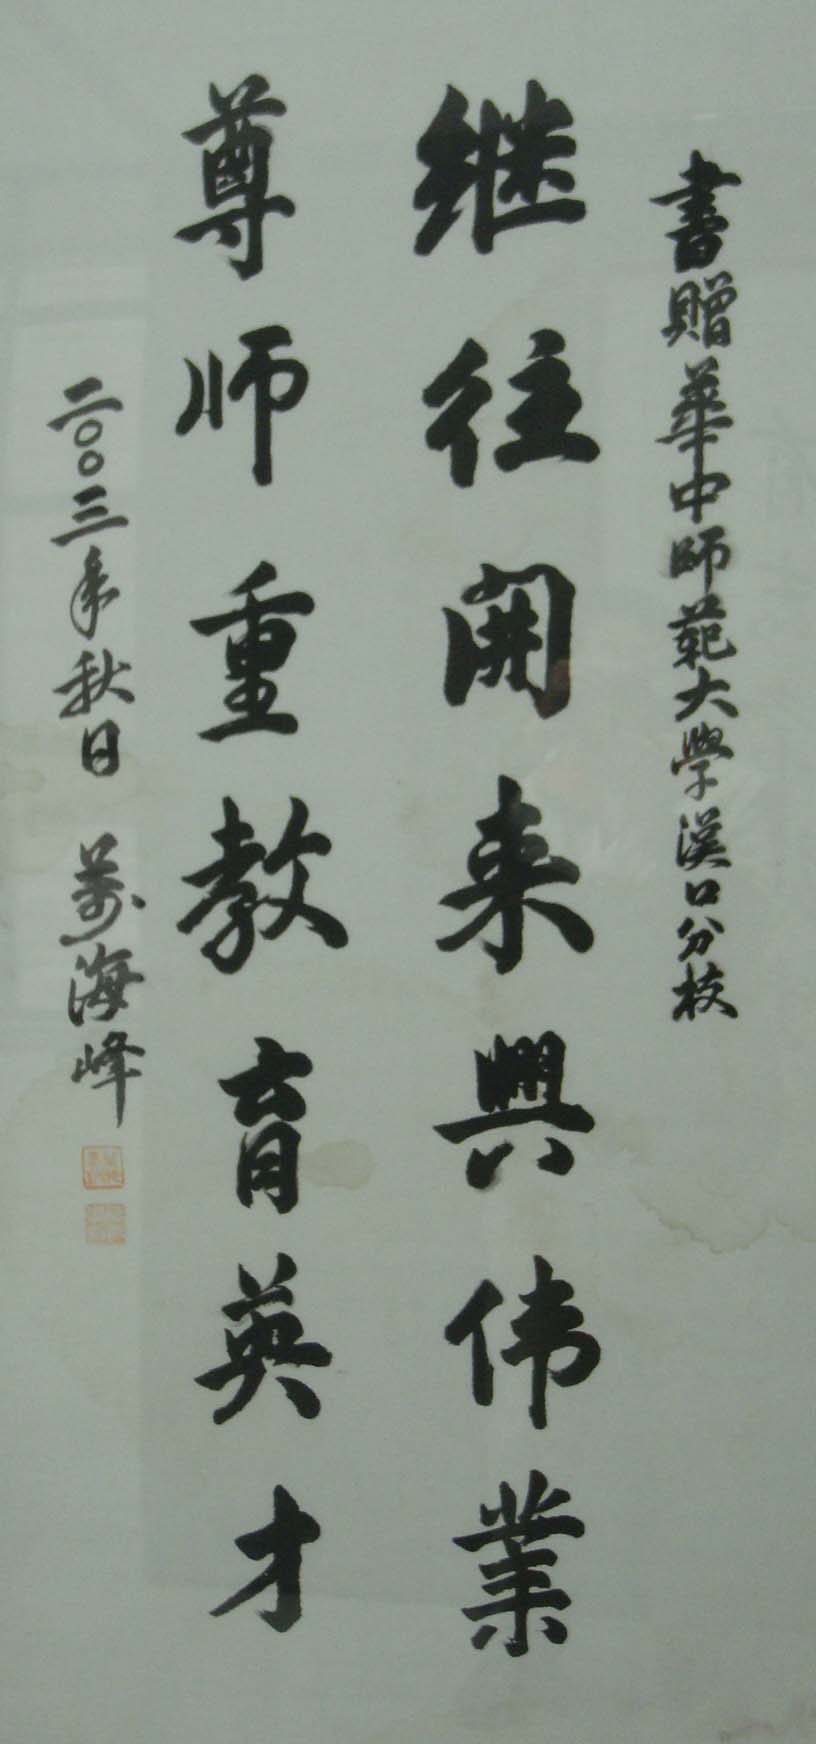 書贈華中師范大學漢口分校
继往開来興伟業
尊师重教育英才
二〇〇三年秋日 萬海峰